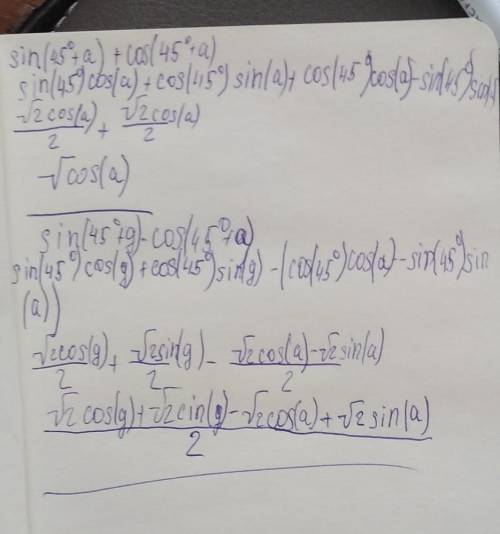 sin(45°+a) + cos(45°+a)
sin(45°)cos(a) + cos(45°) sin(a) + cos(45°)cos(a) - sin(45°)sin(a)
√2cos(a)/2 + √2cos(a)/2
√cos(a)
sin(45°+g) - cos(45°+a)
sin(45°)cos(g) + cos(45°)sin(g) - (cos(45°)cos(a) - sin(45°)sin
(a))
√2cos(g)/2 + √2sin(g)/2 - √2cos(a)-√2sin(a)/2
√2cos(g)+√2sin(g)-√2cos(a)+√2sin(a)
2